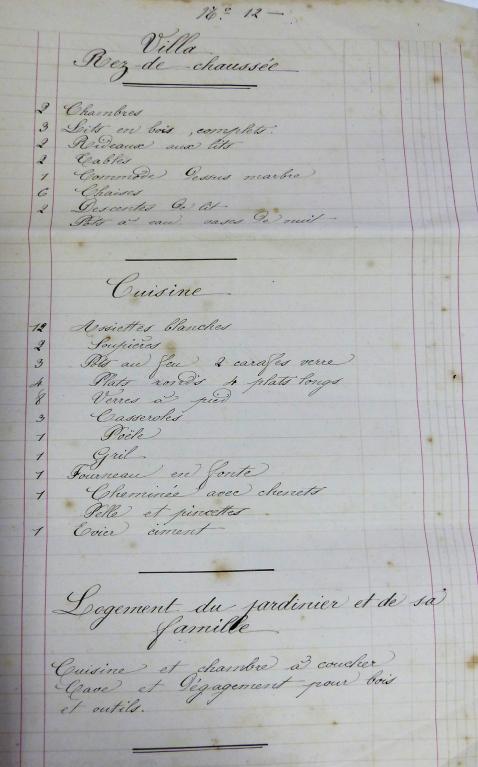 N° 12 —
Villa
Rez de chaussée
2 Chambres
3 Lits en bois, complets.
2 Rideaux aux lits
2 Tables
1 Commode dessus marbre
6 Chaises
2 Descentes de lit
Pots à eau vases de nuit
Cuisine
12 Assiettes blanches
2 Soupières
3 Pots au feu 2 carafes verre
4 Plats ronds 4 plats longs
8 Verres à pied
3 Casseroles
1 Poële
1 Gril
1 Fourneau en fonte
1 Cheminée avec chenets
Pelle et pincettes
1 Evier ciment
Logement du jardinier et de sa
famille
Cuisine et chambre à coucher
Cave et dégagement pour bois
et outils.